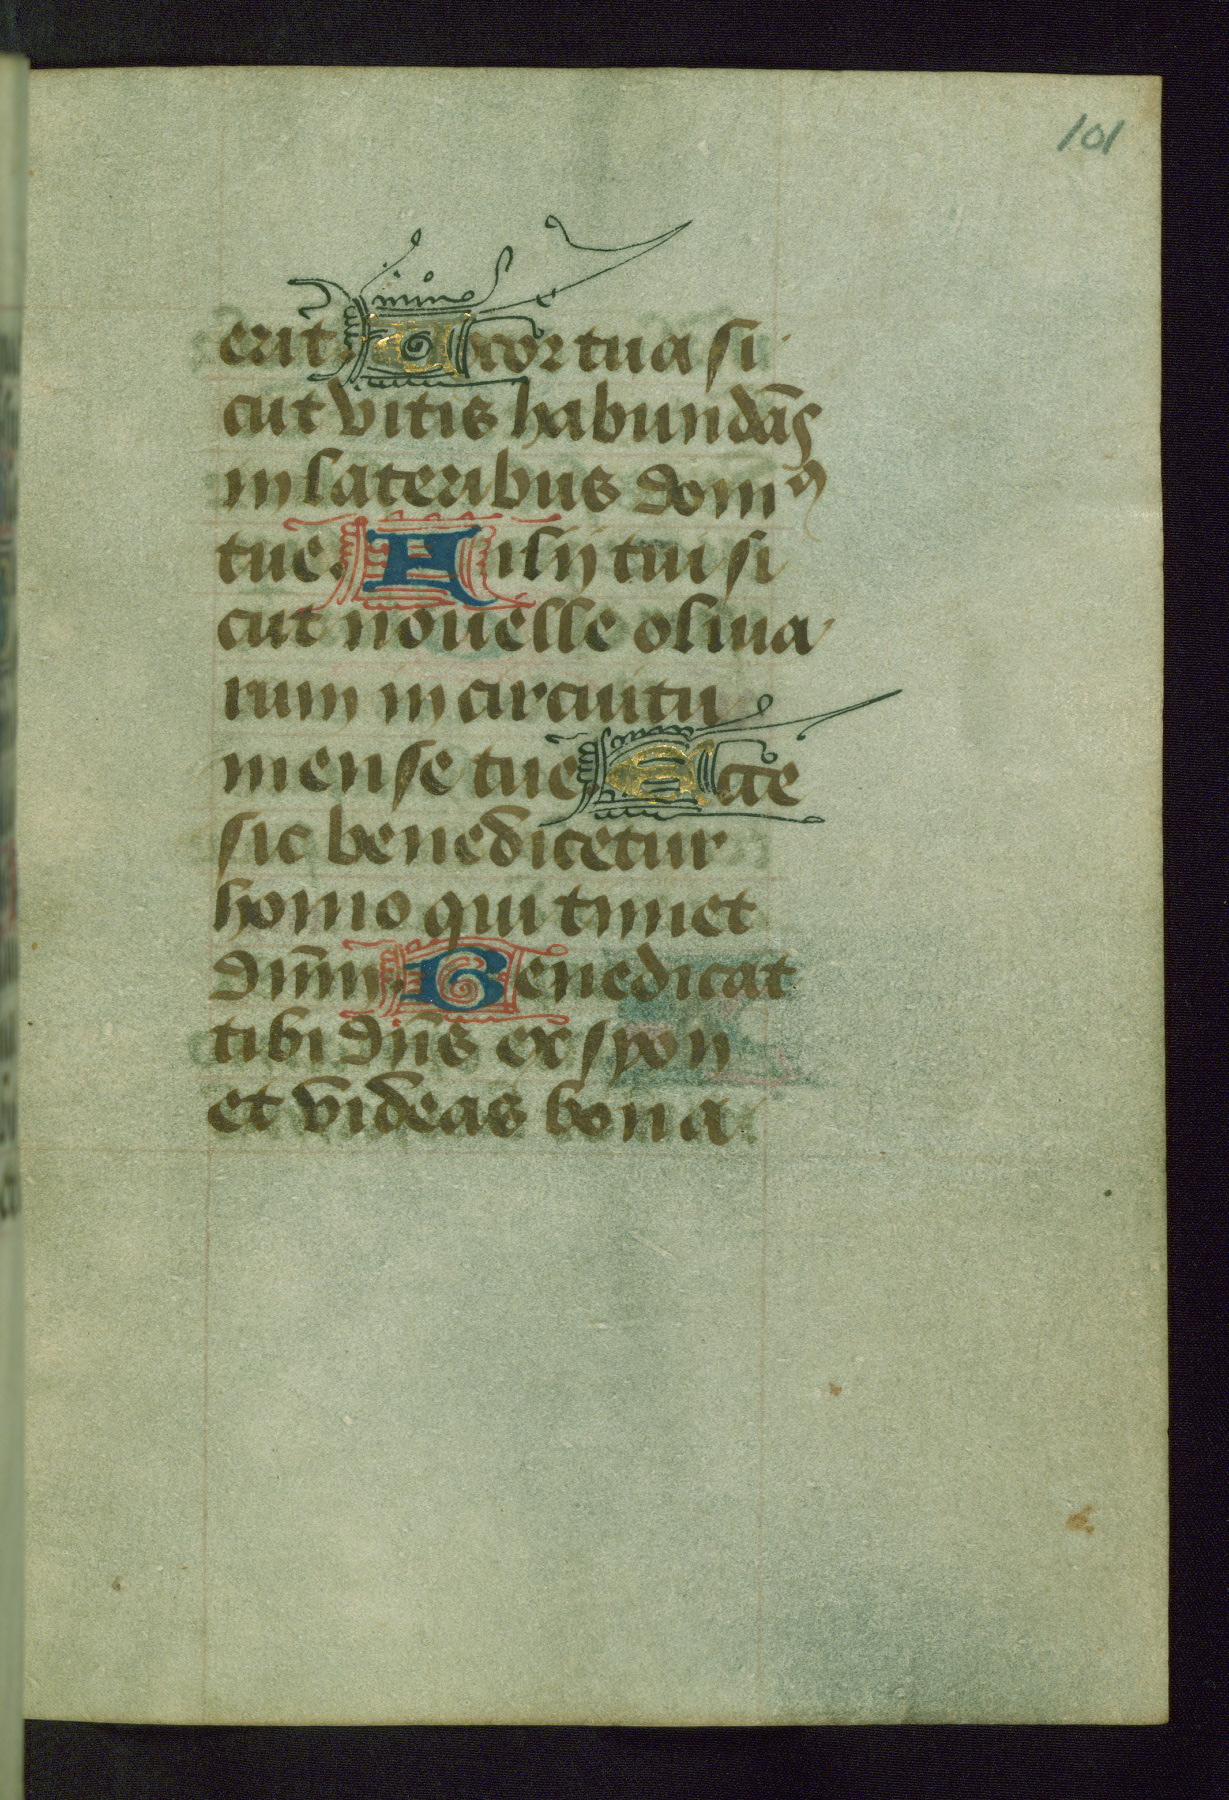 101
erit. Uxor tua si
cut vitis habundãs
in lateribus domꝰ
tue. Filij tui si
cut nouelle oliua
rum in circuitu
mense tue. Ecce
sic benedicetur
homo qui timet
dñm. Benedicat
tibi dñs ex syon
et videas bona